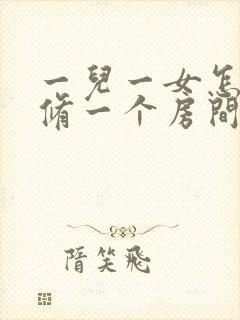 一兒一女怎
脩一个房間
隋笑飛